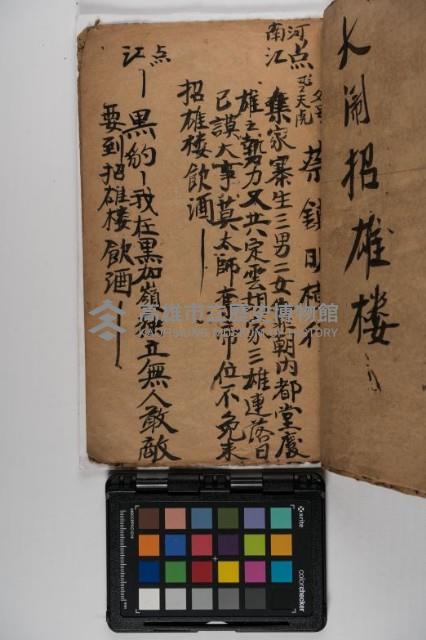 大闹招雄楼
河南江点
蔡鎮明
集家寨生三男二女 朝內都堂慶
雄之勢力又共定雲 家三雄連落日
已謨大事莫太師 帝位不免来
招雄楼飲酒
江点
黑豹 我在黑加嶺独立無人敢敵
要到招雄楼飲酒
高雄市立歷史博物館
KAOHSIUNG MUSEUM OF HISTORY
x-rite
colorchecker